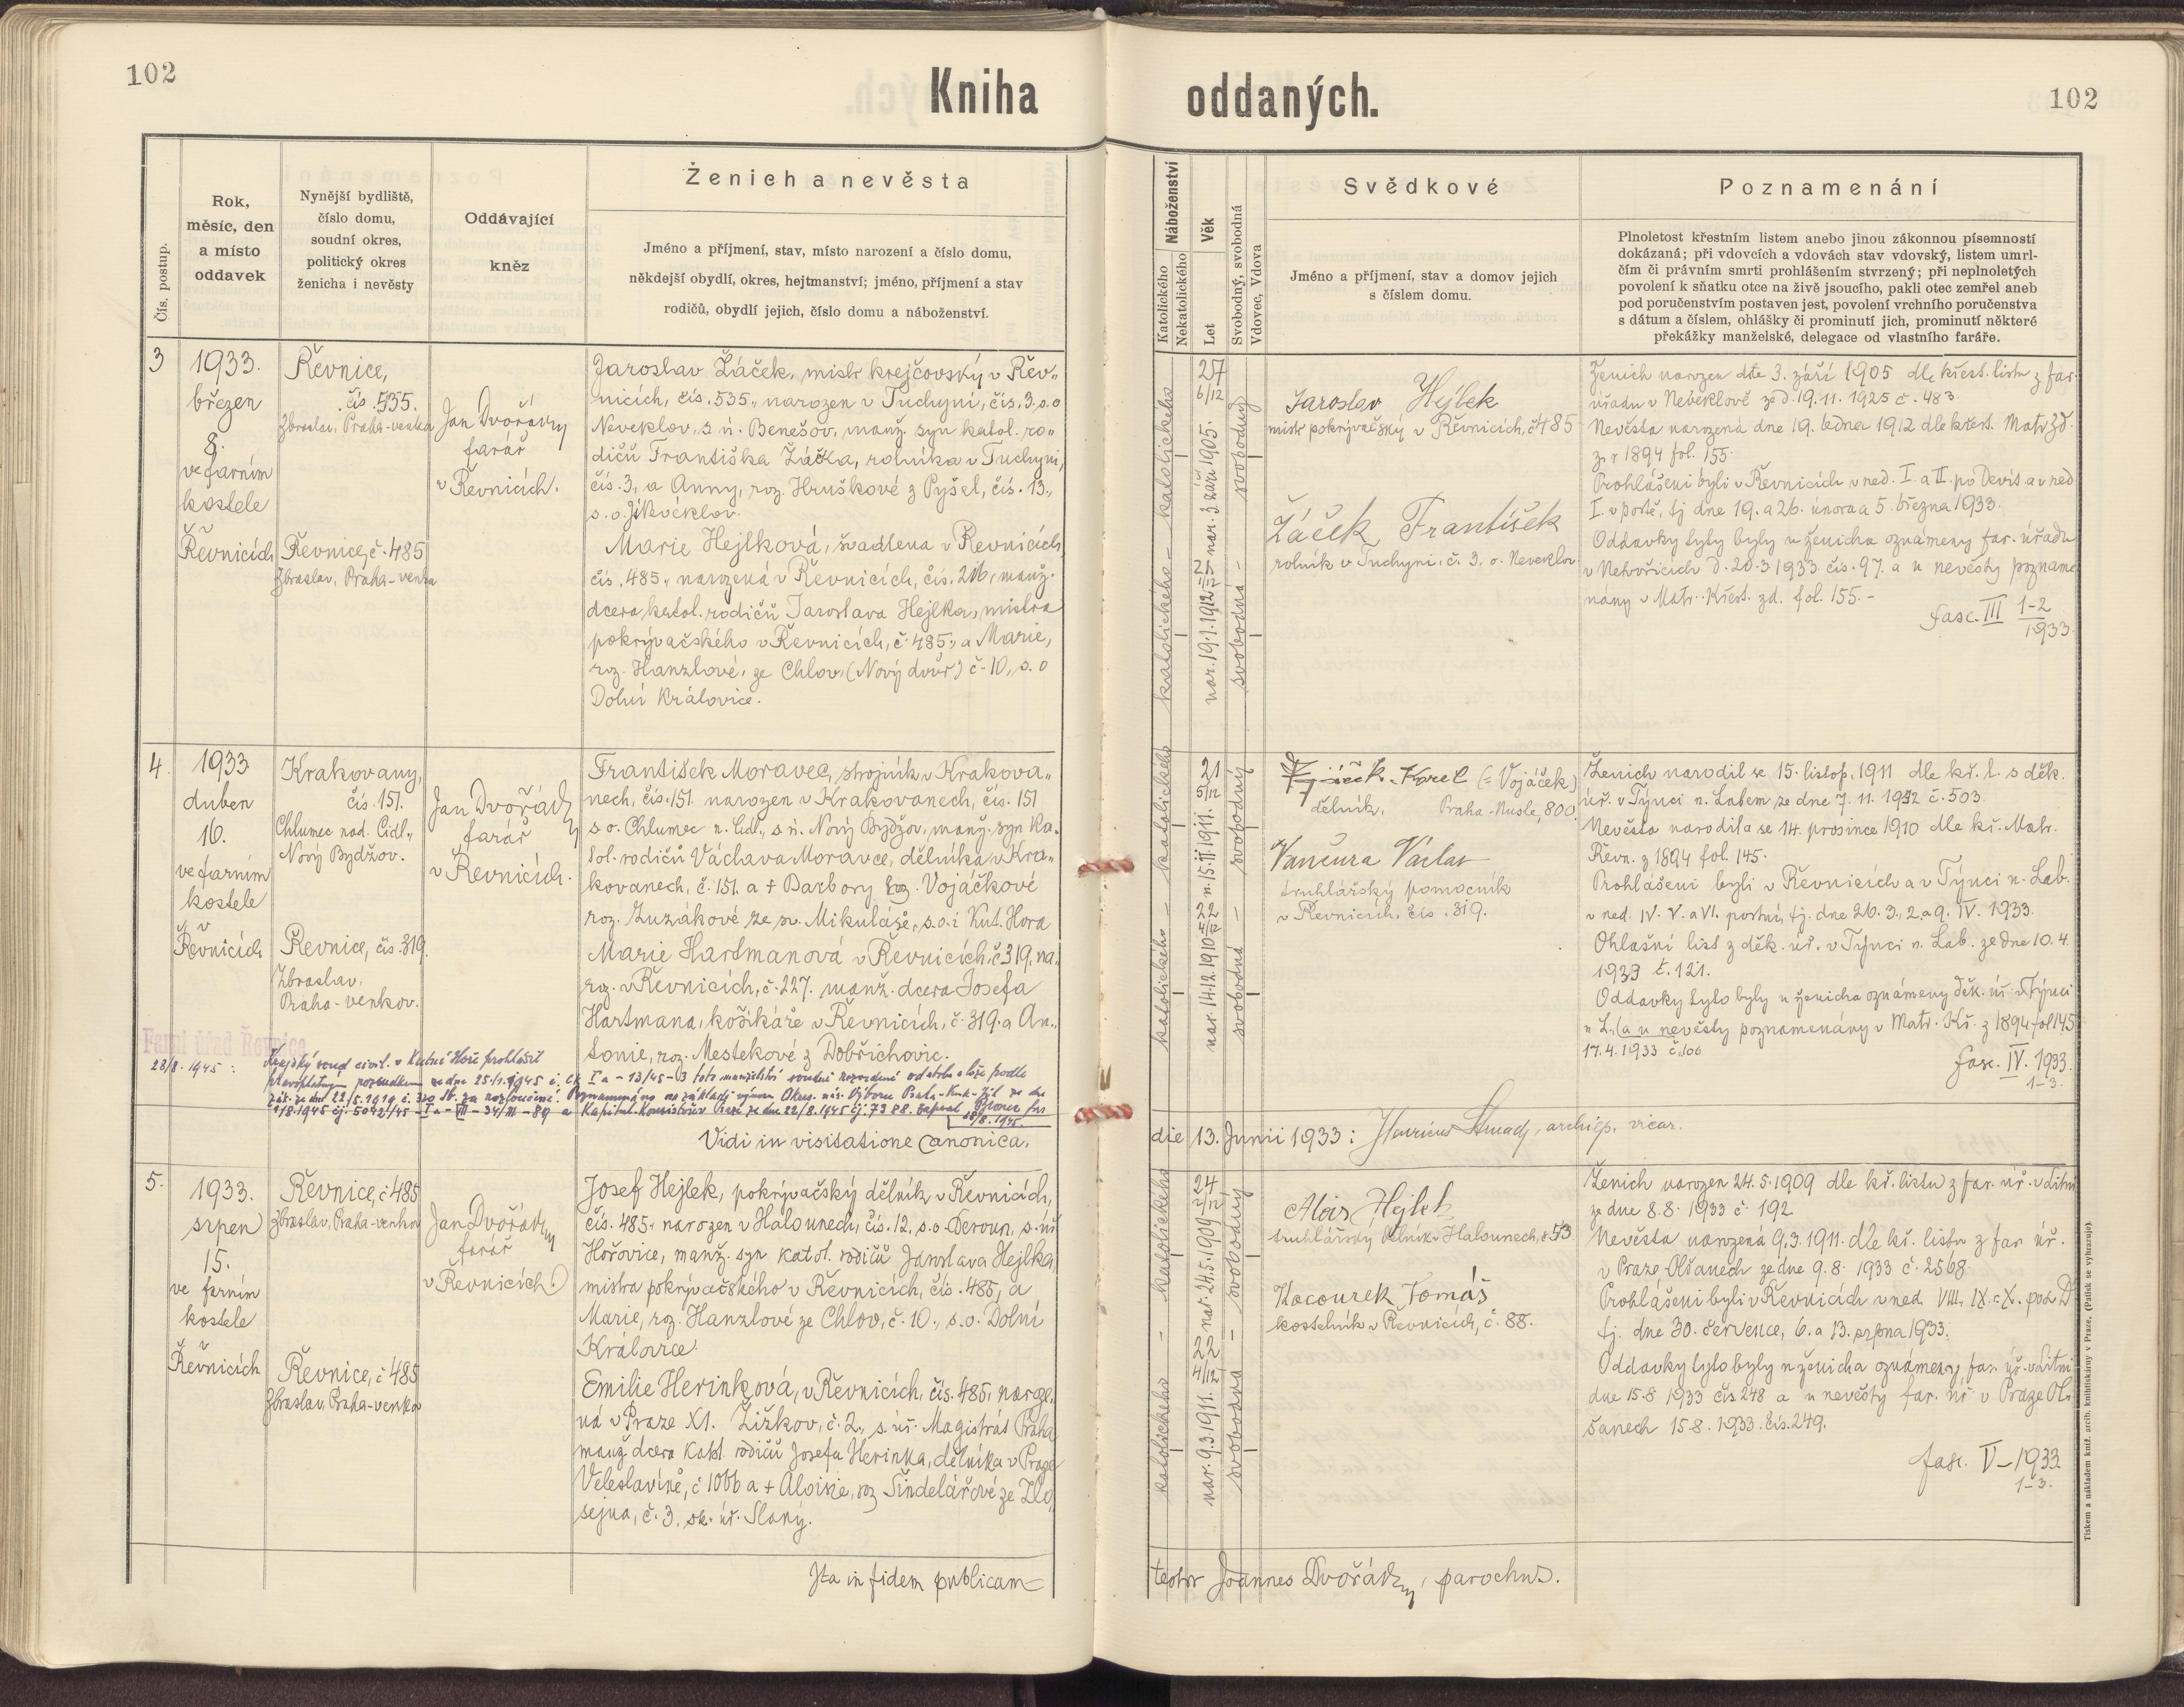 102
Kniha
oddaných.
102
Čís. postup.
Rok,
měsíc, den
a místo
oddavek
Nynější bydliště,
číslo domu,
soudní okres,
politický okres
ženicha i nevěsty
Oddávající
kněz
Ženich a nevěsta
Jméno a příjmení, stav, místo narození a číslo domu,
někdejší obydlí, okres, hejtmanství; jméno, příjmení a stav
rodičů, obydlí jejich, číslo domu a náboženství.
Náboženství
Katolického
Nekatolického
Věk
Let
Svobodný, svobodná
Vdovec, Vdova
Svědkové
Jméno a příjmení, stav a domov jejich
s číslem domu.
Poznamenání
Plnoletost křestním listem anebo jinou zákonnou písemností
dokázaná; při vdovcích a vdovách stav vdovský, listem umrl-
čím či právním smrti prohlášením stvrzený; při neplnoletých
povolení k sňatku otce na živě jsoucího, pakli otec zemřel aneb
pod poručenstvím postaven jest, povolení vrchního poručenstva
s dátum a číslem, ohlášky či prominutí jich, prominutí některé
překážky manželské, delegace od vlastního faráře.
3
1933.
březen
8.
ve farním
kostele
v
Řevnicích
Řevnice,
čís. 535.
Zbraslav, Praha-venkov
Řevnice, č. 485
Zbraslav, Praha-venkov
Jan Dvořák
farář
v Řevnicích.
Jaroslav Žáček, mistr krejčovský v Řev„
nicích, čís. 535., narozen v Tuchyni, čís. 3. s. o
Neveklov, s. ú. Benešov, manž. syn katol. ro-
dičů Františka Žáčka, rolníka v Tuchyni,
čís. 3, a Anny, roz. Hruškové z Pyšel, čís. 13.,
s. o. Neveklov.
Marie Hejlková, švadlena v Řevnicích
čís. 485., narozená v Řevnicích, čís. 216, manž.
dcera katol. rodičů Jaroslava Hejlka, mistra
pokrývačského v Řevnicích, č. 485., a Marie,
roz. Hanzlové, ze Chlov, (Nový dvůr) č. 10, s. o
Dolní Královice.
katolického - katolického
27
6/12
nar. 3. září 1905.
21
nar. 19.1.1912
svobodný
svobodná -
Jaroslav Hejlek
mistr pokrývačský v Řevnicích, č 485
Žáček František
rolník v Tuchyni, č. 3. o. Neveklov
Ženich narozen dne 3. září 1905 dle křest. listu z far.
úřadu v Neveklově ze d. 19. 11. 1925 č. 483.
Nevěsta narozená dne 19. ledna 1912 dle křest. Matr. zd.
z r 1894 fol. 155.
Prohlášeni byli v Řevnicích v ned. I. a II. po Devít. a v ned
I. v postě, tj dne 19. a 26. února a 5. března 1933.
Oddavky tyto byly u ženicha oznámeny far. úřadu
v Netvořicích d. 20.3 1933 čís. 97. a u nevěsty pozname
nány v Matr. Křest. zd. fol. 155. -
fasc. III 1-2
1933.
4.
1933
duben
16.
ve farním
kostele
v
Řevnicích
Krakovany,
čís. 151.
Chlumec nad Cidl.,
Nový Bydžov.
Řevnice, čís. 319.
Zbraslav,
Praha-venkov.
Jan Dvořák
farář
v Řevnicích.
František Moravec, strojník v Krakova„
nech, čís. 151. narozen v Krakovanech, čís. 151
s. o. Chlumec n. Cidl., s. ú. Nový Bydžov, manž. syn ka-
tol. rodičů Václava Moravce, dělníka v Kra„
kovanech, č. 151. a + Barbory Vojáčkové
roz. Zuzákové ze sv. Mikuláše, s. o. i Kut. Hora
Marie Hartmanová v Řevnicích, č 319, na„
roz. v Řevnicích, č. 227. manž. dcera Josefa
Hartmana, košíkáře v Řevnicích, č. 319. a An„
tonie, roz. Mestekové z Dobřichovic.
katolického - katolického
21
5/12
n. 15. 11. 1911.
22
nar. 14.12.1910
svobodný
svobodná -
Karel (= Vojáček)
dělník, Praha-Nusle, 800.
Vančura Václav
truhlářský pomocník
v Řevnicích, čís. 319.
Ženich narodil se 15. listop. 1911 dle kř. l. s děk.
úř. v Týnci n. Labem ze dne 7. 11. 1932 č. 503.
Nevěsta narodila se 14. prosince 1910 dle kř. Matr.
Řevn. z 1894 fol. 145.
Prohlášeni byli v Řevnicích a v Týnci n. Lab.
v ned. IV. V. a VI. postní, tj. dne 26. 3., 2. a 9. IV. 1933.
Ohlašní list z děk. úř. v Týnci n. Lab. ze dne 10. 4.
1933 č. 121.
Oddavky tyto byly u ženicha oznámeny děk. úř. v Týnci
n L., (a u nevěsty poznamenány v Matr. Kř. z 1894 fol 145
17. 4. 1933 č. 106
fasc. IV. 1933.
1-3.
Farní úřad Řevnice
28/8. 1945 :
Krajský soud civil. v Kutné Hoře prohlásil
pravoplatným rozsudkem ze dne 25./1. 1945 č. Ck I a - 13/45-3 toto manželství soudně rozvedené od stolu a lože podle
zák. ze dne 22/5. 1919 č. 320 Sb. za rozloučené. Poznamenáno na základě výnosu Okres. nár. Výboru Praha-venk-
18. 1945 čj. 5042/45 - a Kapitul. Konsistoře v Praze ze dne 22/8. 1945 čj. 7388.
28/8. 1945.
Vidi in visitatione canonica.
die 13. Junii 1933 : Henricus , archiep. vicar.
5.
1933.
srpen
15.
ve farním
kostele
v
Řevnicích
Řevnice, č 485
Zbraslav, Praha-venkov
Řevnice, č 485
Zbraslav, Praha-venkov
Jan Dvořák
farář
v Řevnicích.
Josef Hejlek, pokrývačský dělník v Řevnicích,
čís. 485., narozen v Halounech, čís. 12, s. o. Beroun, s. úř
Hořovice, manž. syn katol. rodičů Jaroslava Hejlka
mistra pokrývačského v Řevnicích, čís. 485, a
Marie, roz. Hanzlové ze Chlov, č. 10., s. o. Dolní
Královice.
Emilie Herinková, v Řevnicích, čís. 485, naroze„
ná v Praze XI. Žižkov, č. 2., s. úř. Magistrát Praha
manž dcera katol. rodičů Josefa Herinka, dělníka v Praze
Veleslavíně, č 1066 a + Aloisie, roz Šindelářové ze Zlo„
sejna, č. 3. sk. úř. Slaný.
katolického - katolického
24
2/12
nar. 24.5.1909
22
4/12
nar. 9.3.1911.
svobodný
svobodná -
Alois Hejlek
truhlářský dělník v Halounech, č 53
Kocourek Tomáš
kostelník v Řevnicích, č. 88.
Ženich narozen 24. 5. 1909 dle kř. listu z far. úř. v Litni
ze dne 8.8. 1933 č. 192
Nevěsta narozená 9. 3. 1911. dle kř. listu z far. úř.
v Praze-Olšanech ze dne 9. 8. 1933 č. 2568
Prohlášeni byli v Řevnicích v ned. VIII., IX. a X. po sv. D
tj. dne 30. července, 6. a 13. srpna 1933.
Oddavky tyto byly u ženicha oznámeny far. úř. v Litni
dne 15.8 1933 čís 248 a u nevěsty far. úř v Praze Ol„
šanech 15.8. 1933. čís. 249.
fasc. V - 1933
1-3.
Ita in fidem publicam =
testor Joannes Dvořák, parochus.
Tiskem a nákladem kníž. arcib. knihtiskárny v Praze. (Patisk se vyhrazuje).